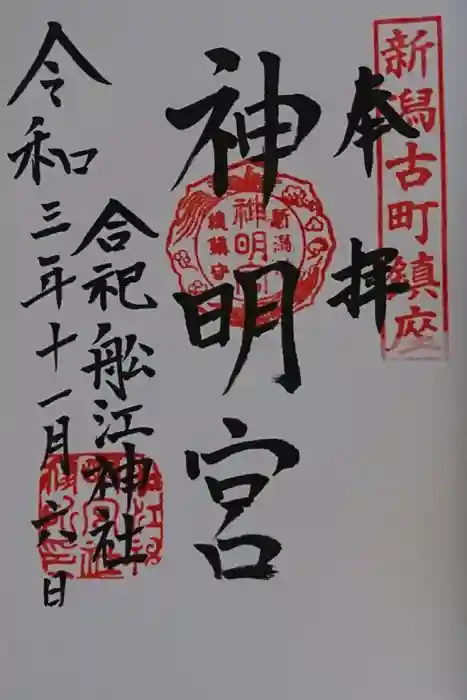 新潟古町鎮座
奉拝
神明宮
合祀船江神社
令和三年十一月六日
新潟
神明